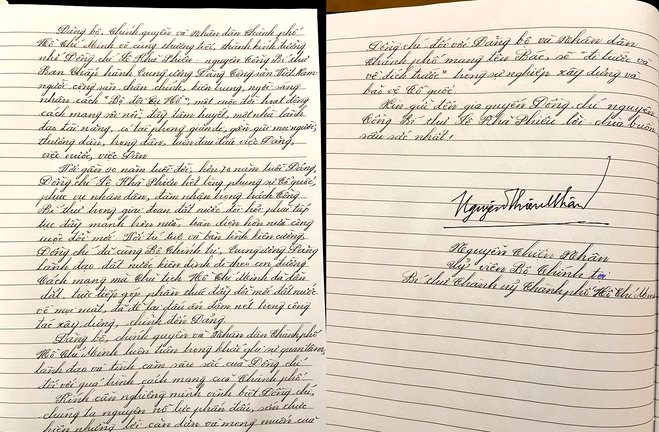 Đảng bộ, Chính quyền và Nhân dân Thành phố
Hồ Chí Minh vô cùng thương tiếc, thành kính tưởng
nhớ Đồng chí Lê Khả Phiêu - nguyên Tổng Bí thư
Ban Chấp hành Trung ương Đảng Cộng sản Việt Nam -
người cộng sản chân chính, kiên trung, ngời sáng
nhân cách "Bộ đội Cụ Hồ", một cuộc đời hoạt động
cách mạng sôi nổi, đầy tâm huyết, một nhà lãnh
đạo tài năng, có tác phong giản dị, gần gũi mọi người,
thương dân, trọng dân, luôn đau đáu việc Đảng,
việc nước, việc Dân.
Với gần 90 năm tuổi đời, hơn 70 năm tuổi Đảng,
Đồng chí Lê Khả Phiêu hết lòng phụng sự Tổ quốc,
phục vụ nhân dân, đảm nhận trọng trách Tổng
Bí thư trong giai đoạn đất nước đòi hỏi phải tiếp
tục đẩy mạnh hơn nữa, toàn diện hơn nữa công
cuộc đổi mới. Với trí tuệ và bản lĩnh kiên cường,
Đồng chí đã cùng Bộ Chính trị, Trung ương Đảng
lãnh đạo đất nước kiên định đi theo con đường
Cách mạng mà Chủ tịch Hồ Chí Minh đã dẫn
dắt, trực tiếp góp phần thúc đẩy đổi mới đất nước
về mọi mặt, đã để lại dấu ấn đậm nét trong công
tác xây dựng, chỉnh đốn Đảng.
Đảng bộ, chính quyền và Nhân dân Thành phố
Hồ Chí Minh luôn trân trọng khắc ghi sự quan tâm,
lãnh đạo và tình cảm sâu sắc của Đồng chí
đối với quá trình cách mạng của Thành phố.
Kính cẩn nghiêng mình vĩnh biệt Đồng chí,
chúng ta nguyện nỗ lực phấn đấu, sớm thực
hiện những lời căn dặn và mong muốn của
Đồng chí đối với Đảng bộ và Nhân dân
Thành phố mang tên Bác, sẽ "đi trước và
về đích trước" trong sự nghiệp xây dựng và
bảo vệ Tổ quốc.
Xin gửi đến gia quyến Đồng chí nguyên
Tổng Bí thư Lê Khả Phiêu lời chia buồn
sâu sắc nhất!
Nguyễn Thiện Nhân
Nguyễn Thiện Nhân
Ủy viên Bộ Chính trị
Bí thư Thành ủy Thành phố Hồ Chí Minh